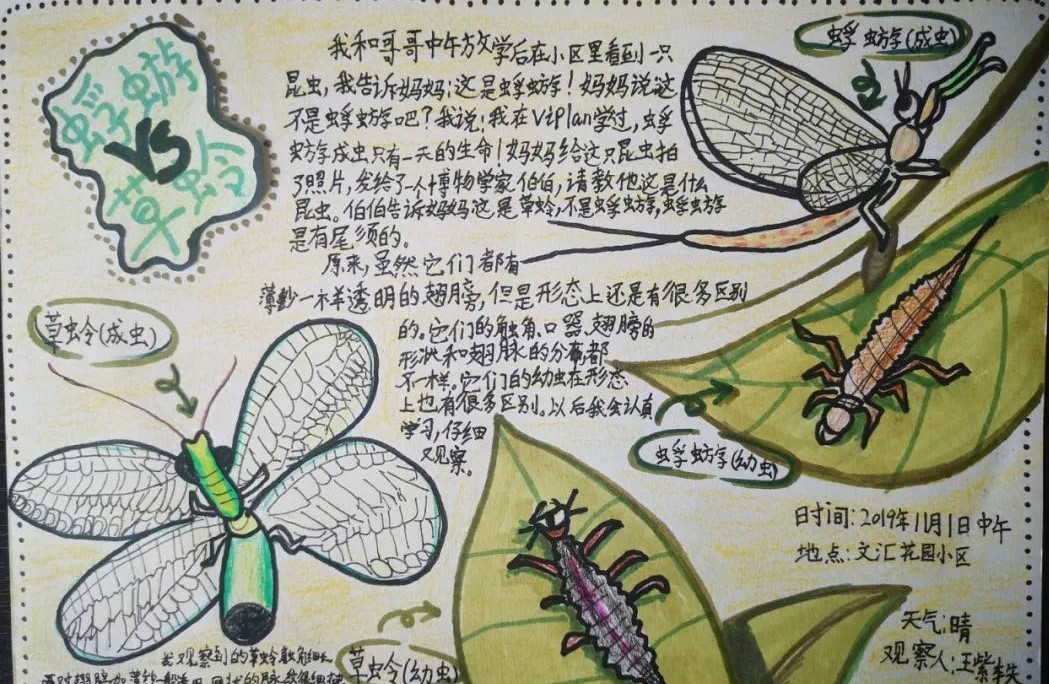 蜉蝣
VS
草蛉
我和哥哥中午放学后在小区里看到一只
昆虫，我告诉妈妈：这是蜉蝣！妈妈说这
不是蜉蝣吧？我说：我在Viplan学过，蜉
蝣成虫只有一天的生命！妈妈给这只昆虫拍
了照片，发给了一个博物学家伯伯，请教他这是什么
昆虫。伯伯告诉妈妈这是草蛉，不是蜉蝣，蜉蝣
是有尾须的。
原来，虽然它们都有
薄纱一样透明的翅膀，但是形态上还是有很多区别
的。它们的触角、口器、翅膀的
形状和翅脉的分布都
不一样。它们的幼虫在形态
上也有很多区别。以后我会认真
学习，仔细
观察。
蜉蝣(成虫)
草蛉(成虫)
蜉蝣(幼虫)
时间：2019年11月1日中午
地点：文汇花园小区
天气：晴
观察人：王紫轶
草蛉(幼虫)
我观察到的草蛉触角细长